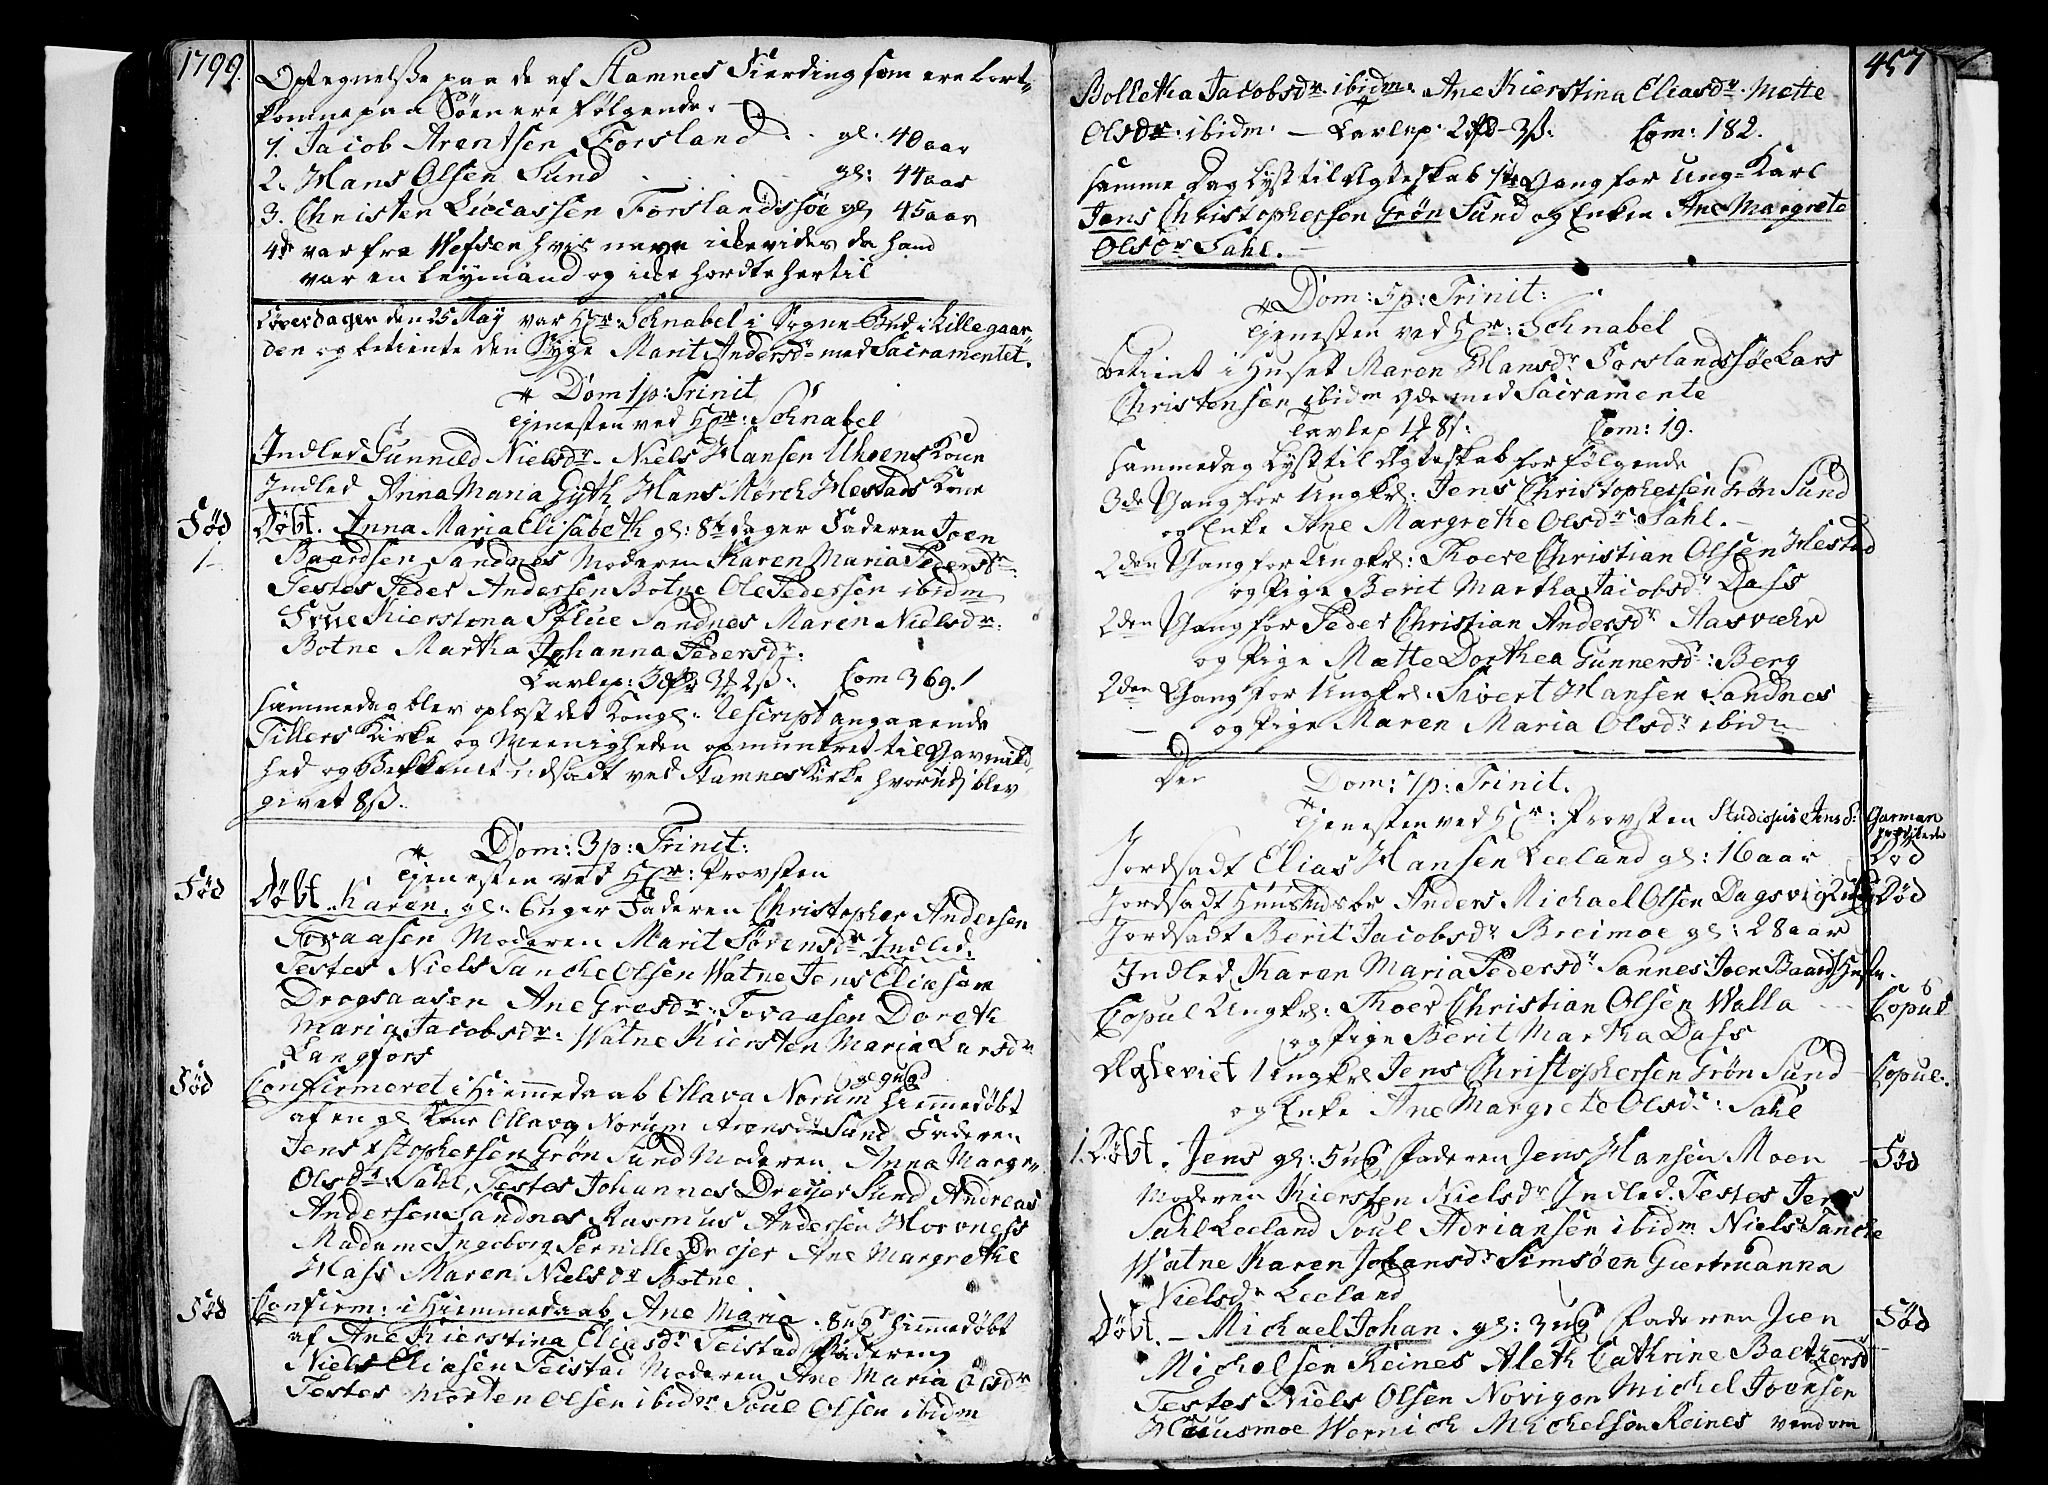 1799.
Optegnelse paa de af Stamnes Fierding som ere bort-
komne paa Søen ere følgende.
1. Jacob Arentsen Forsland gl: 40 aar
2. Hans Olsen Sund gl: 44 aar
3. Christen Lucassen Forslandssøe gl 45 aar
4de var fra Wefsen hvis navn ikke vides da hand
var en leymand og icke hørdte hertil
Løverdagen den 25 May var Hr: Schnabel i Sogne Bud i Lillegaar
den og betiente den Syge Marit Andersdr med Sacramentet.
Dom 1 p: Trinit
Tjenesten ved Hr: Schnabel
Indled Gunnild Nielsdr. Niels Hansen Uhrens Kone
Indled Anna Maria Gyth Hans Mørch Hestads Kone
Fød
1
Døbt. Anna Maria Elisabeth gl: 8te dager Faderen Joen
Baardsen Sandnes Moderen Karen Maria Pedersdr:
Testes Peder Andersen Botne Ole Pedersen ibidm
Frue Kierstena Pflue Sandnes Maren Nielsdr:
Botne Martha Johanna Pedersdr:
Tavlep: 3 2ß: Com 369. 1
Sammedag blev oplæst det Kongl: Rescript angaaende
Tillers Kirke og Meenigheden opmuntret til Gavmild
hed og Bekkenet udsadt ved Stamnes Kirke hvorudj blev
givet 8ß.
Dom: 3 p: Trinit:
Tjenesten ved Hr: Provsten
Fød
Døbt. Karen. gl: 6 uger Faderen Christopher Andersen
Tovaasen Moderen Marit Sørensdr Indled.
Testes Niels Tanche Olsen Watne Jens Eliasen
Drogsaasen Ane Gresdr: Tovaasen Doreth
Maria Jacobsdr: Watne Kiersten Maria Larsdr
Langfors
Fød
Confirmeret i Hiemmedaab Ollava Norum hiemmedøbt
af en gl Kone Ollava Norum Aronsdr Sund Faderen
Jens Xstophersen Grøn Sund Moderen Anna Margr
Olsdr: Sahl, Testes Johannes Dreyer Sund Andreas
Andersen Sandnes Rasmus Andersen Horvness
Madame Ingeborg Pernille Dreyer Ane Margrethe
Hass Maren Nielsdr Botne
Fød
Confirm: i Hiemmedaab Ane Maria. 8 ug hiemmedøbt
af Ane Kierstina Eliasdr Teistad Faderen
Niels Eliasen Teistad Moderen Ane Maria Olsdr
Testes Morten Olsen ibidm Poul Olsen ibidm
457
Bolletha Jacobsdr ibidm. Ane Kierstina Eliasdr. Mette
Olsdr: ibidm. — Tavlep: 2 3ß: Com: 182.
Samme Dag Lyst til Ægteskab 1ste Gang for Ung-Karl
Jens Christophersen Grøn Sund og Enken Ane Margrete
Olsdr Sahl.
Dom: 5 p: Trinit:
Tjenesten ved Hr: Schnabel
Betient i Huset Maren Hansdr Forslandssøe Lars
Christensen ibidm med Sacramente
Tavlep 8ß: Com: 19.
Sammedag Lyst til Ægteskab for følgende
3de Gang for Ungkl: Jens Christophersen Grøn Sund
og Enke Ane Margrethe Olsdr: Sahl.
2den Gang for Ungkl: Thoere Christian Olsen Hestad
og Pige Berit Martha Jacobsdr Dass
2den Gang for Peder Christian Andersdr Aasværr
og Pige Mætte Dorthea Gunnersdr: Berg
2den Gang for Ungkl: Sivert Hansen Sandnes
og Pige Maren Maria Olsdr ibidm
Dom: 7 p: Trinit.
Tjenesten ved Hr: Provsten Studiosus Jens Garman
Jordsadt Elias Hansen Leeland gl: 16 aar
Død
Jordsadt Huusmds br Anders Michael Olsen Dagsvig
Død
Jordsadt Berit Jacobsdr Breimoe gl: 28 aar
Indled Karen Maria Pedersdr Sannes Joen Baards
Copul Ungkl: Thoer Christian Olsen Walla
og Pige Berit Martha Dass
Copul
Ægteviet Ungkl Jens Christophersen Grøn Sund
og Enke Ane Margrete Olsdr: Sahl
Copul.
1. Døbt. Jens gl: 5 ug Faderen Jens Hansen Moen
Fød
Moderen Kiersten Nielsdr Indled. Testes Jens
Sahl Leeland Poul Adriansen ibidm Niels Tanche
Watne Karen Johansdr Simsøen Giertruanna
Nielsdr Leeland
Døbt. — Michael Johan. gl: 3 ug Faderen Joen
Fød
Michelsen Reines Aleth Cathrine Baltzersdr
Testes Niels Olsen Novigen Michel Joensen
Huusmoe Wernich Michelsen Reines vend om